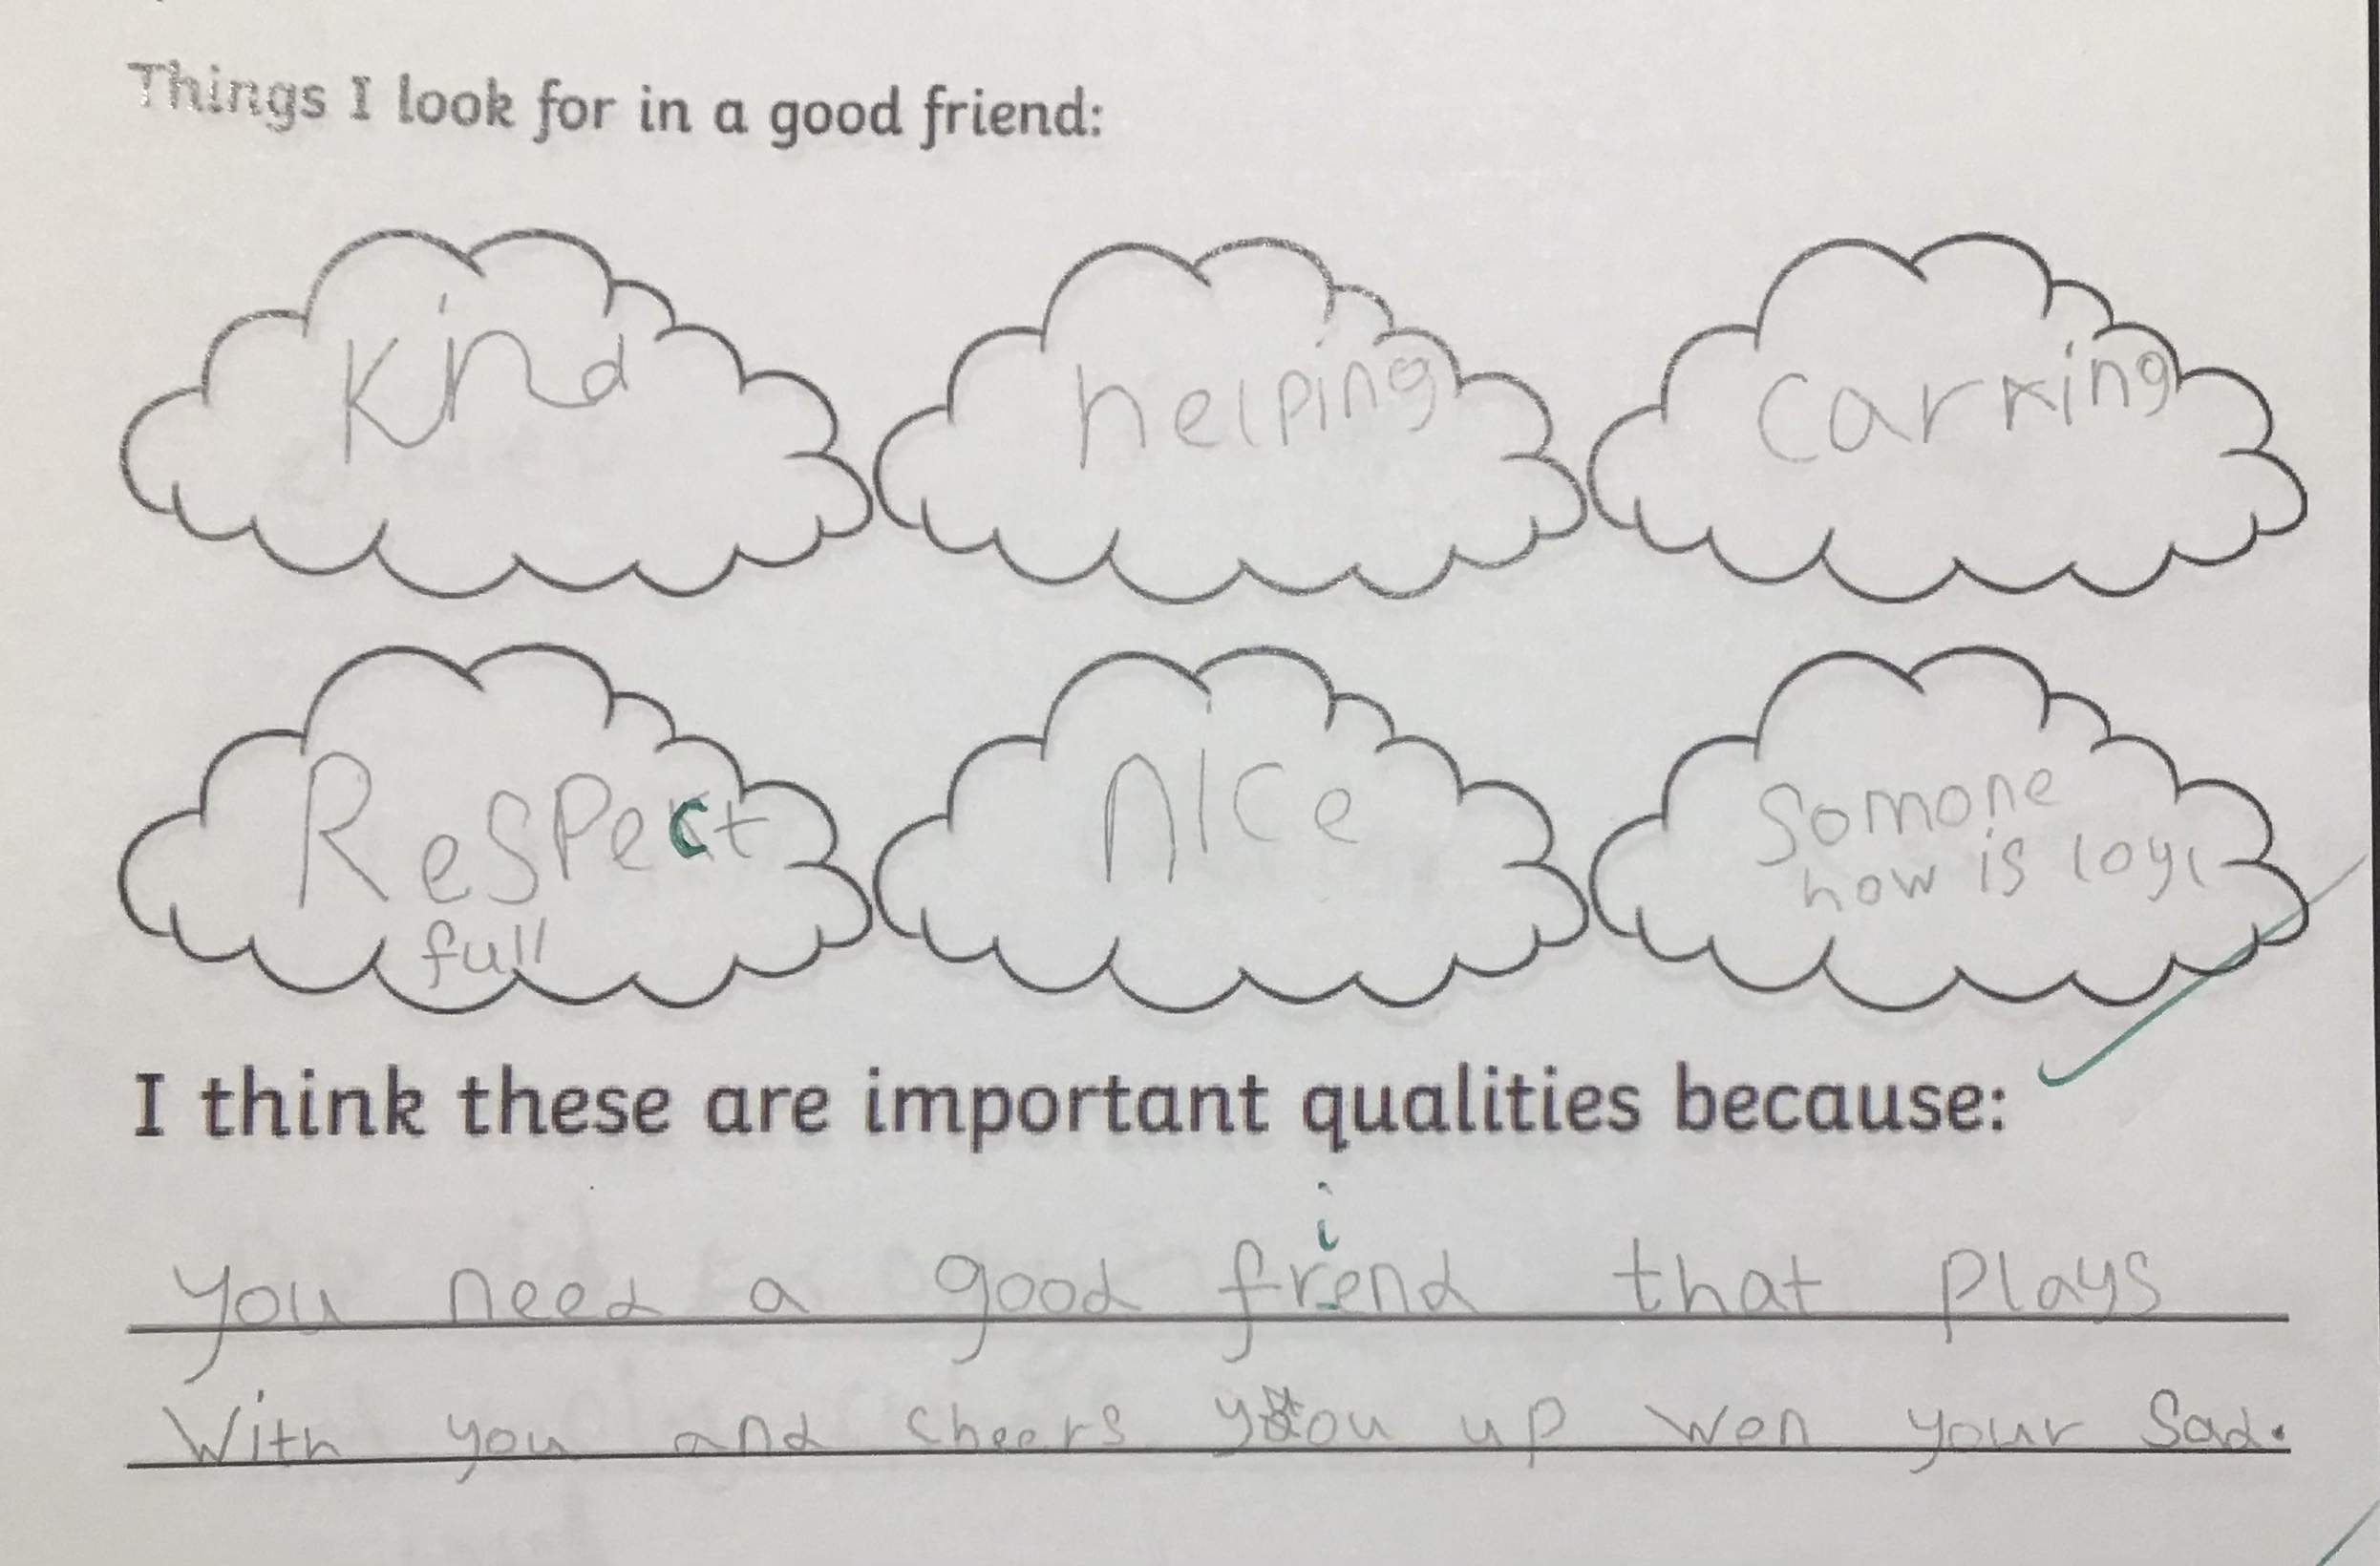 Things I look for in a good friend:
kind
helping
carring
Respect
full
nice
Somone
how is loyl
I think these are important qualities because:
i
you need a good frend that plays
With you and cheers you up wen your Sad.